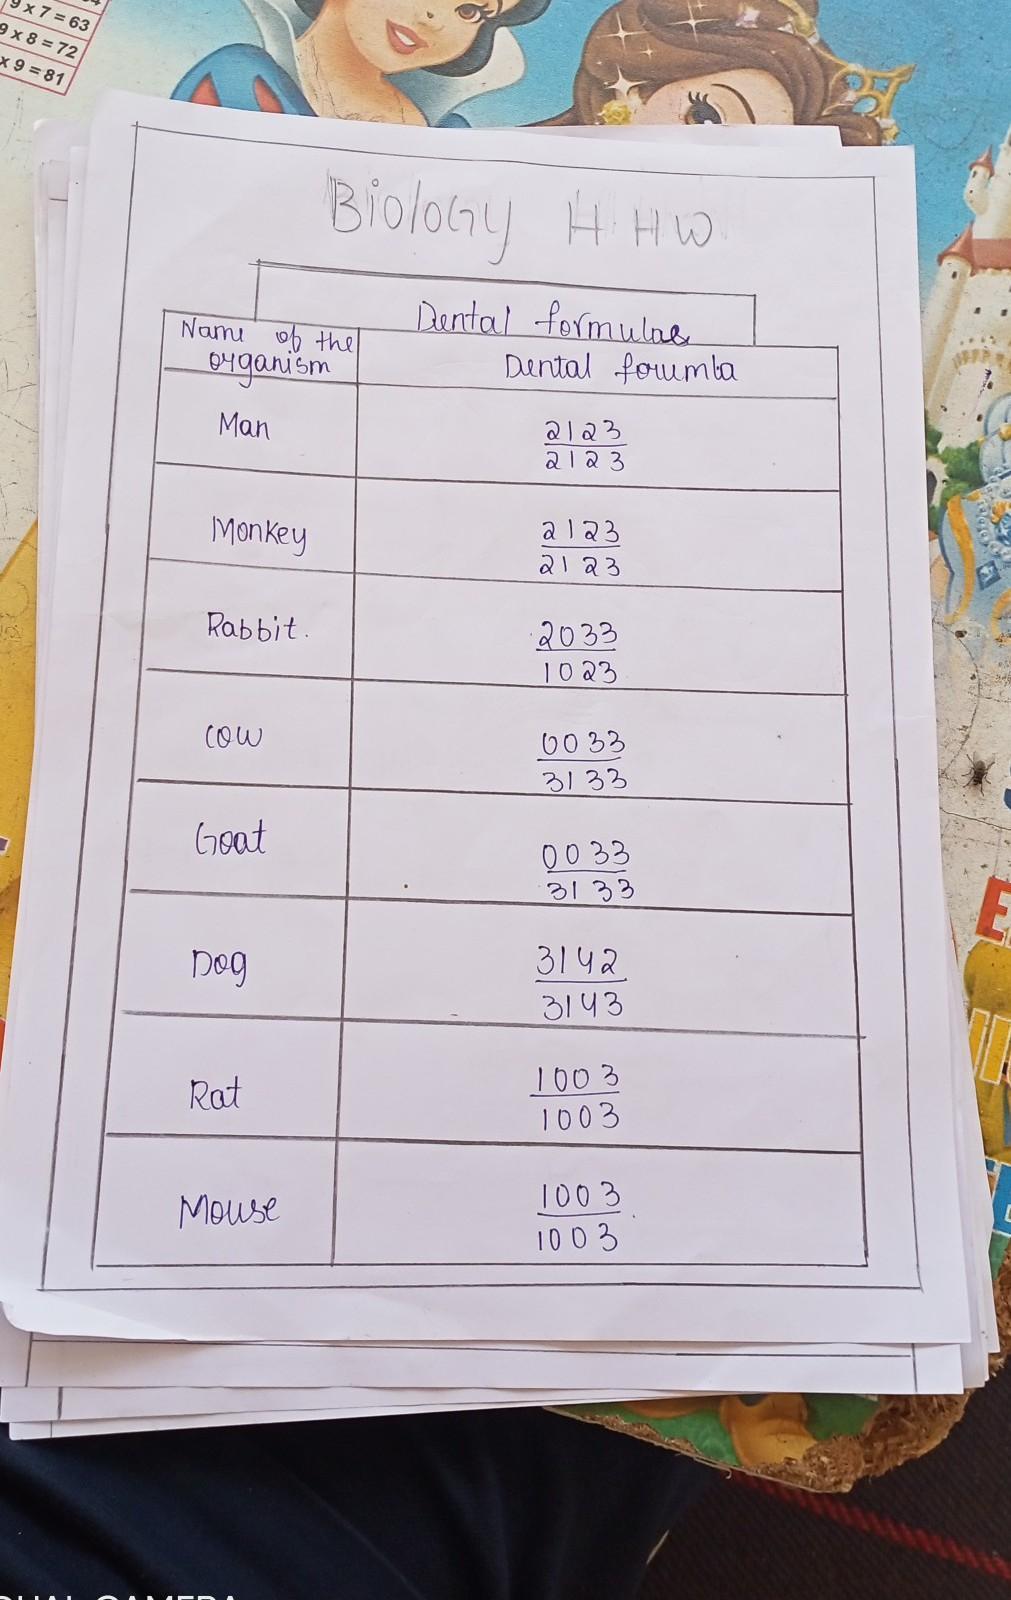 9 x 7 = 63
9 x 8 = 72
x 9 = 81
Biology H.HW
Dental formulas
Name of the
organism
Dental forumla
Man
2123
2123
Monkey
2123
2123
Rabbit.
2033
1023
cow
0033
3133
Goat
0033
3133
Dog
3142
3143
Rat
1003
1003
Mouse
1003
1003